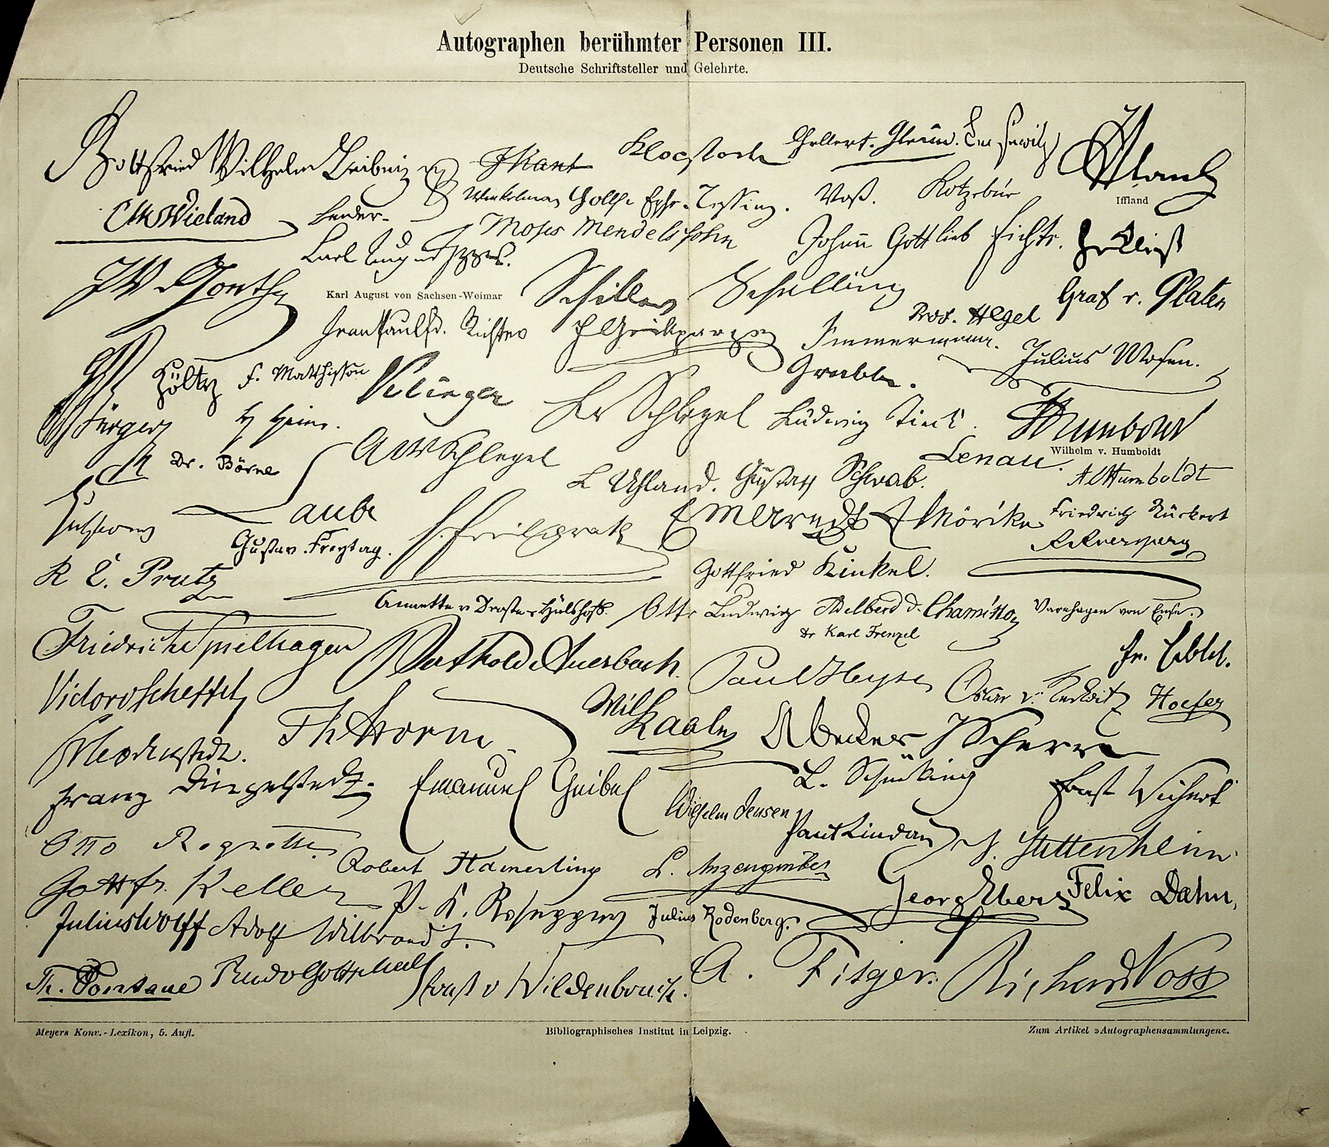 Autographen berühmter Personen III.
Deutsche Schriftsteller und Gelehrte.
Gottfried Wilhelm Leibniz JKant Klopstock Gellert. Gleim.
Iffland
CMWieland Herder Winkelman Gotth. Ephr. Lessing. Voß. Kotzebue
Moses Mendelssohn Johann Gottlieb Fichte. HvKleist
JWvGoethe Carl August
Karl August von Sachsen-Weimar
Schiller Schelling Prof. Hegel Graf v. Platen
Jean Paul Fr. Richter FGrillparzer Immermann. Julius Mosen.
Hölty F. Matthisson Klinger Grabbe.
Bürger H Heine. Fr Schlegel Ludwig Tieck. Humboldt
Wilhelm v. Humboldt
Dr. Börne AWSchlegel Lenau. AlHumboldt
L Uhland. Gustav Schwab.
Gutzkow Laube FFreiligrath EMArndt E Mörike Friedrich Rückert
Gustav Freytag.
R E. Prutz Gottfried Kinkel.
Annette v Droste-Hülshoff. Otto Ludwig Adelbert v. Chamisso Varnhagen von Ense.
Dr Karl Frenzel
Friedrich Spielhagen Berthold Auerbach. Paul Heyse Fr. Hebbel.
Victor v Scheffel Oscar v. Redwitz Hoefer
Wilh Raabe
FBodenstedt. ThStorm ABecker JScherr
Franz Dingelstedt. Emanuel Geibel L. Schücking Ernst Wichert
Wilhelm Jensen Paul Lindau J. Stettenheim
Otto Roquette Robert Hamerling L. Anzengruber
Gottfr. Keller P. K. Rosegger Georg Ebers Felix Dahn,
Julius Wolff Adolf Wilbrandt. Julius Rodenberg.
Th. Fontane Rudolf Gottschall Ernst v Wildenbruch. A. Fitger. Richard Voss
Meyers Konv.-Lexikon, 5. Aufl. Bibliographisches Institut in Leipzig. Zum Artikel »Autographensammlungen«.